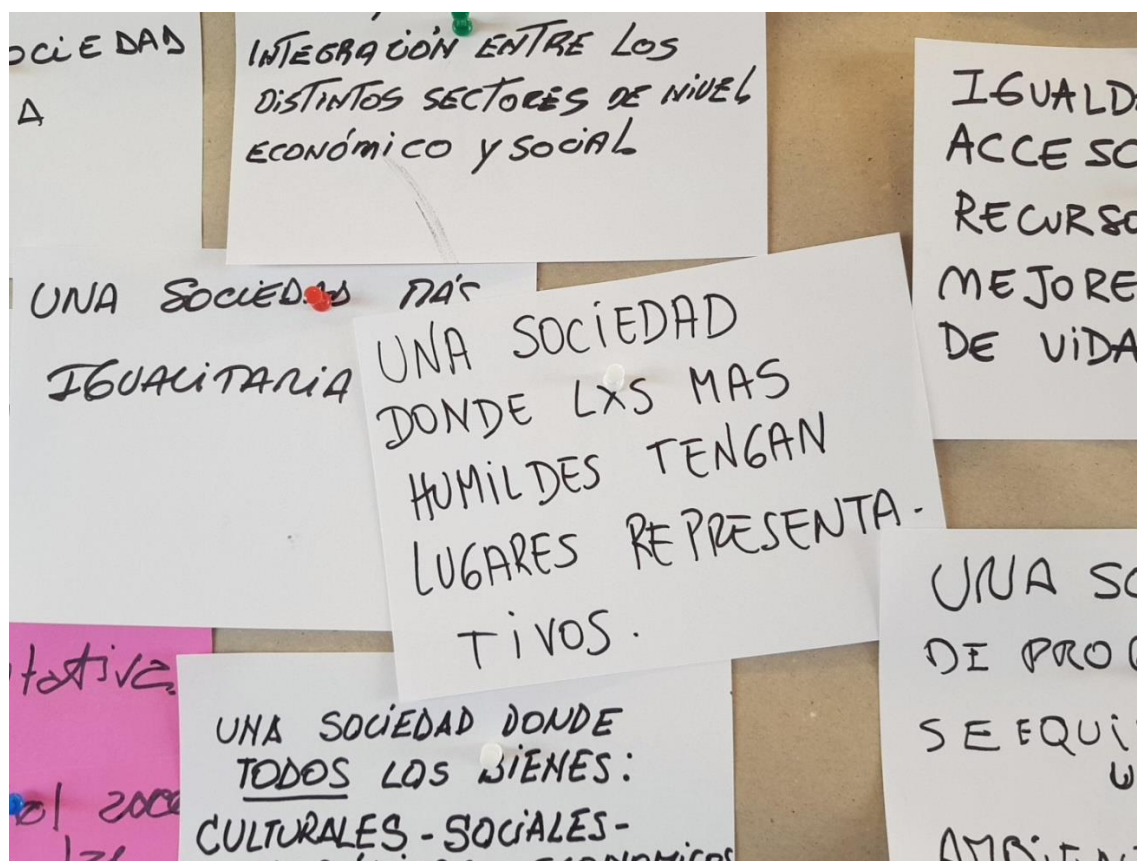 SOCIEDAD
INTEGRACIÓN ENTRE LOS
DISTINTOS SECTORES DE NIVEL
ECONÓMICO Y SOCIAL
IGUALD
ACCESO
RECURSO
MEJORE
DE VIDA
UNA SOCIEDAD MÁS
IGUALITARIA
UNA SOCIEDAD
DONDE LXS MAS
HUMILDES TENGAN
LUGARES REPRESENTA-
TIVOS.
UNA SO
DE PRO
SE EQUI
AMBIENT
tativa
UNA SOCIEDAD DONDE
TODOS LOS BIENES:
CULTURALES - SOCIALES -
ECONOMICOS